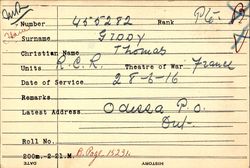 Number 455282 Rank Pte.
Surname GIDDY
Christian Name Thomas
Units R.C.R. Theatre of War France
Date of Service 28-6-16
Remarks
Latest Address Odessa P.O.
Ont.
Roll No. B. Page 15231.
200m.-2-21.M.
HISTORY